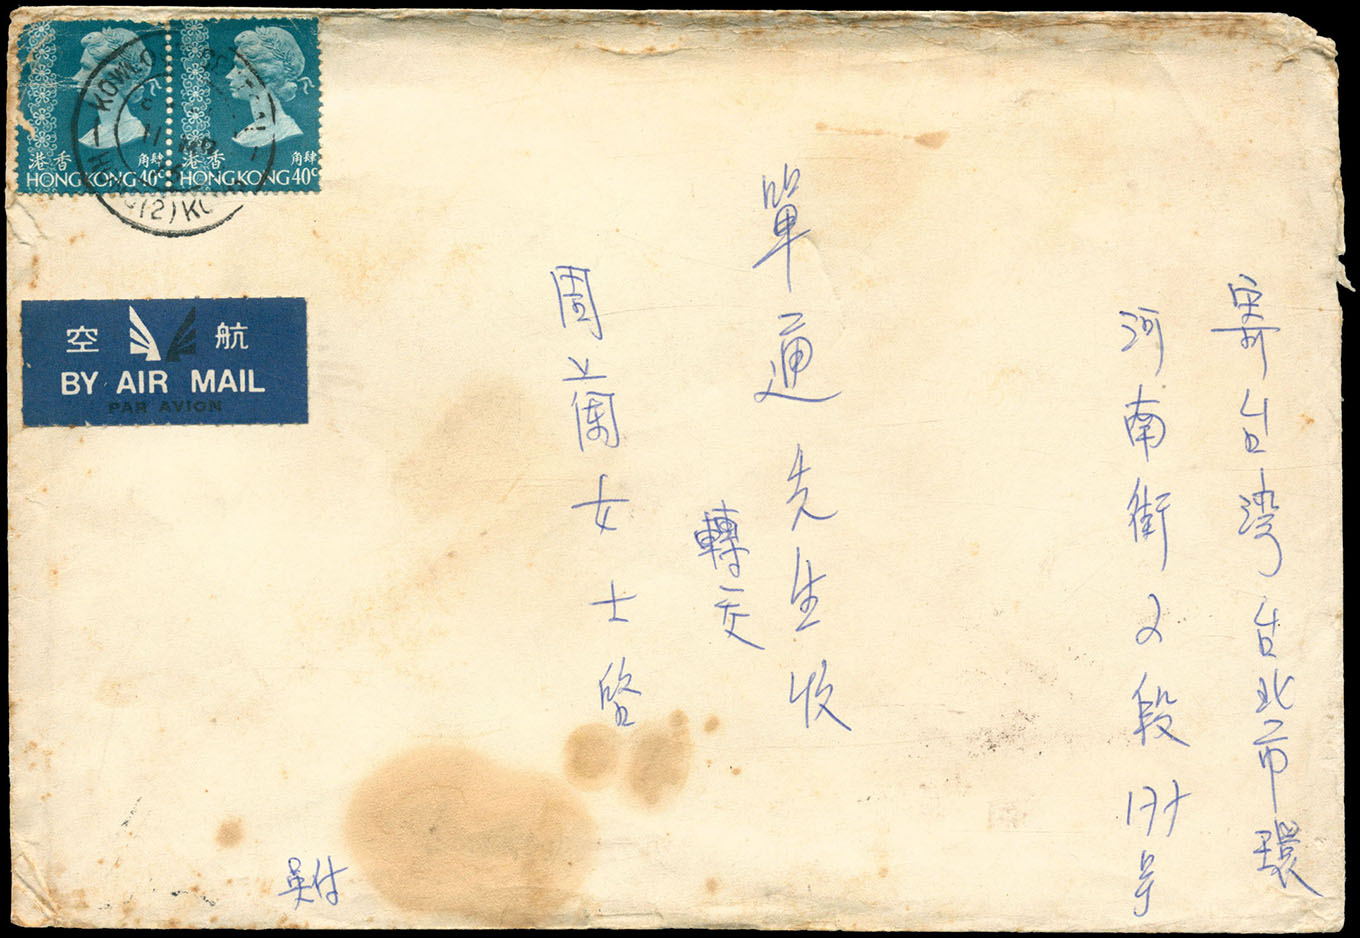 寄台湾台北市環
河南街2段177号
單通先生收
轉交
周兰蘭女士啓
吴付
香港
角肆
HONG KONG 40c
香港
角肆
HONG KONG 40c
(2)
空 航
BY AIR MAIL
PAR AVION